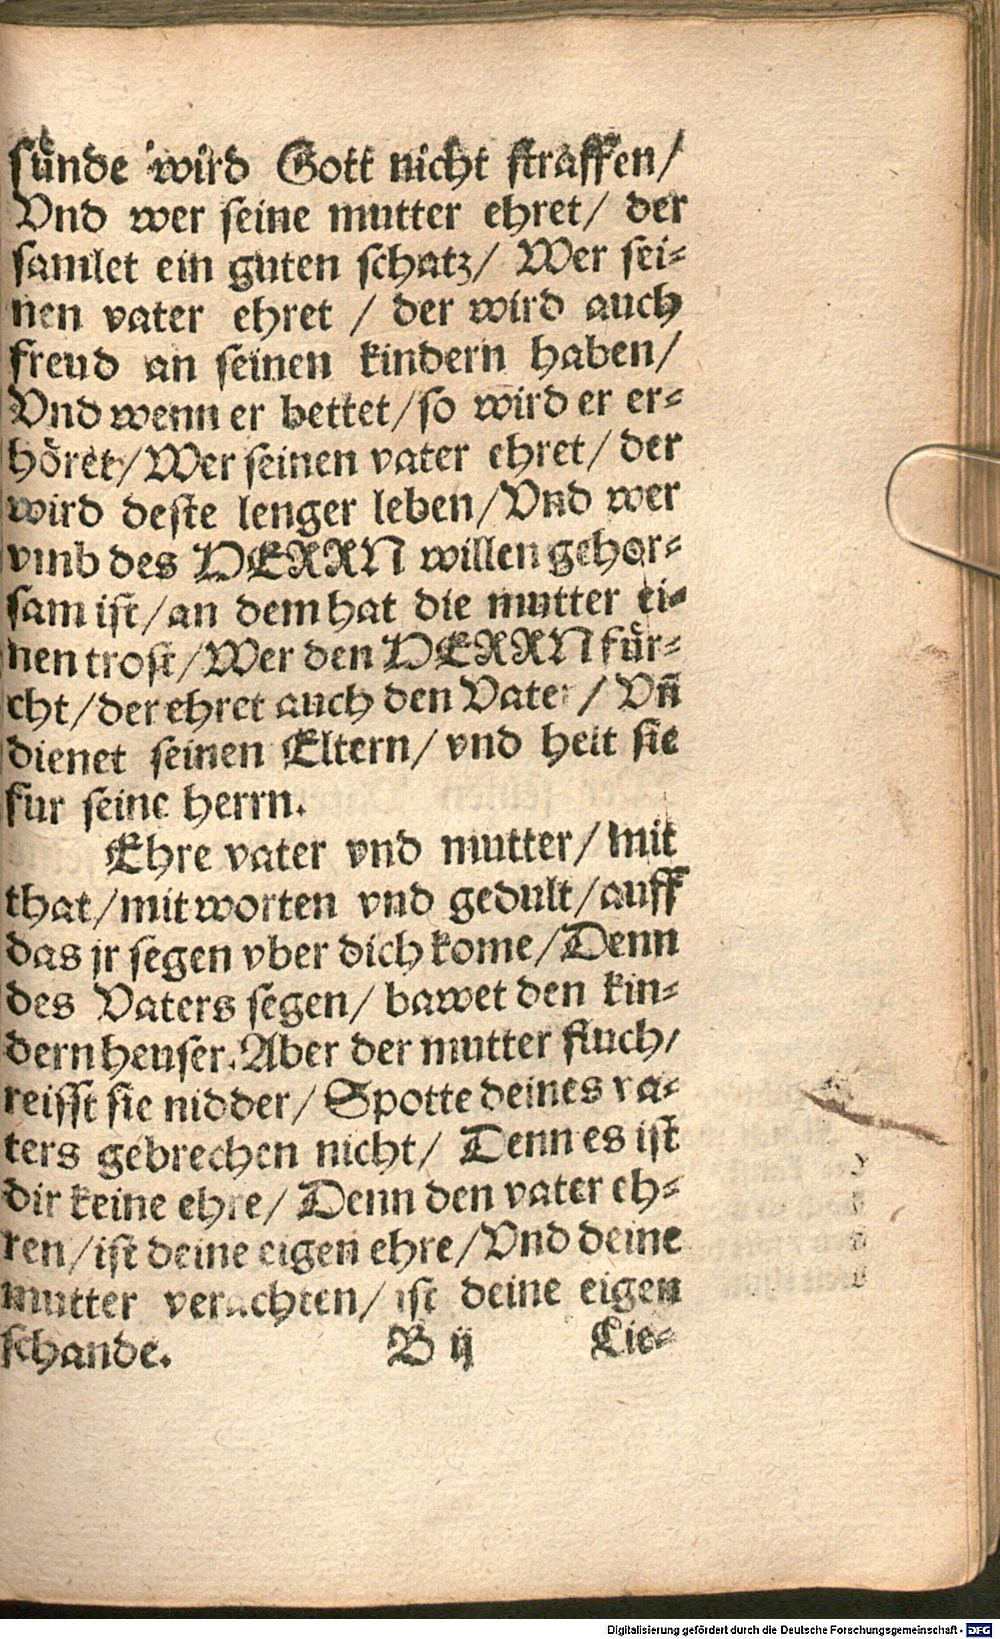 sünde wird Gott nicht straffen/
Vnd wer seine mutter ehret/ der
samlet ein guten schatz/ Wer sei-
nen vater ehret / der wird auch
freud an seinen kindern haben/
Vnd wenn er bettet/so wird er er-
höret/Wer seinen vater ehret/ der
wird deste lenger leben/Vnd wer
vmb des HERRN willen gehor-
sam ist/an dem hat die mutter ei-
nen trost/Wer den HERRN für-
cht/der ehret auch den Vater/ Vñ
dienet seinen Eltern/ vnd helt sie
fur seine herrn.
Ehre vater vnd mutter/mit
that/mit worten vnd gedult/auff
das jr segen vber dich kome/Denn
des Vaters segen/ bawet den kin-
dern heuser. Aber der mutter fluch/
reisst sie nidder/ Spotte deines va-
ters gebrechen nicht/ Denn es ist
dir keine ehre/ Denn den vater eh-
ren/ist deine eigen ehre/Vnd deine
mutter verachten/ ist deine eigen
schande. B ij Lie-
Digitalisierung gefördert durch die Deutsche Forschungsgemeinschaft - DFG